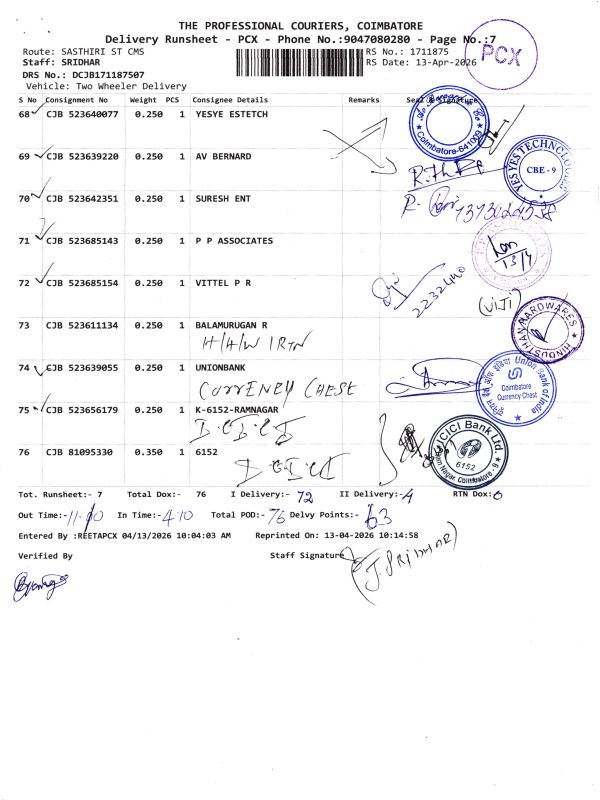 THE PROFESSIONAL COURIERS, COIMBATORE
Delivery Runsheet - PCX - Phone No.:9047080280 - Page No.:7
Route: SASTHIRI ST CMS RS No.: 1711875
Staff: SRIDHAR RS Date: 13-Apr-2026
DRS No.: DCJB171187507
Vehicle: Two Wheeler Delivery
PCX
S No Consignment No Weight PCS Consignee Details Remarks Seal & Signature
68 CJB 523640077 0.250 1 YESYE ESTETCH
Coimbatore-641009
69 CJB 523639220 0.250 1 AV BERNARD
YES YES TECHNOLOGIES
CBE - 9
70 CJB 523642351 0.250 1 SURESH ENT
71 CJB 523685143 0.250 1 P P ASSOCIATES
13/4
72 CJB 523685154 0.250 1 VITTEL P R
2232440
(VIJI)
73 CJB 523611134 0.250 1 BALAMURUGAN R
H/4/W 1 RTN
HINDUSTHAN HARDWARES
74 CJB 523639055 0.250 1 UNIONBANK
CURRENCY CHEST
यूनियन बैंक ऑफ इंडिया Union Bank of India
Coimbatore
Currency Chest
75 CJB 523656179 0.250 1 K-6152-RAMNAGAR
I.C.I.C.I
76 CJB 81095330 0.350 1 6152
I.C.I.C.I
ICICI Bank Ltd.
6152
Ram Nagar, Coimbatore - 9
Tot. Runsheet:- 7 Total Dox:- 76 I Delivery:- 72 II Delivery:- 4 RTN Dox:0
Out Time:-11.10 In Time:-4.10 Total POD:- 76 Delvy Points:- 63
Entered By :REETAPCX 04/13/2026 10:04:03 AM Reprinted On: 13-04-2026 10:14:58
Verified By Staff Signature
(J. SRIDHAR)